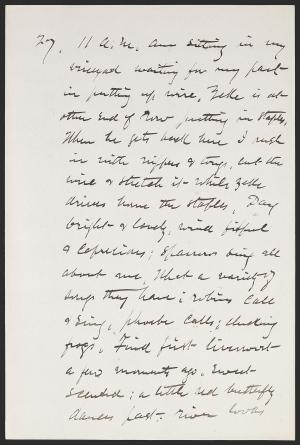 27. 11 A.M. am sitting in my
vineyard waiting for my part
in putting up wire, Zeke is at
other end of row putting in staples,
When he gets back here I rush
in with nippers & tongs, cut the
wire & stretch it while Zeke
drives home the staples, Day
bright & lovely, wind fitful
& capricious; Sparrows sing all
about me, What a variety of
songs they have; robins call
& sing, phoebe calls; clucking
frogs, Find first liverwort
a few moments ago, sweet-
scented; a little red butterfly
dances past. river looks